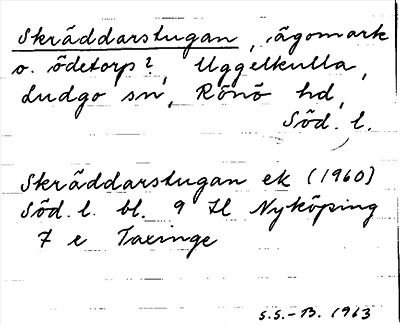 Skräddarstugan, ägomark
o. ödetorp?, Uggelkulla,
Ludgo sn, Rönö hd,
Söd. l.
Skräddarstugan ek (1960)
Söd. l. bl. 9 H Nyköping
7 e Taxinge
S.S.-B. 1963